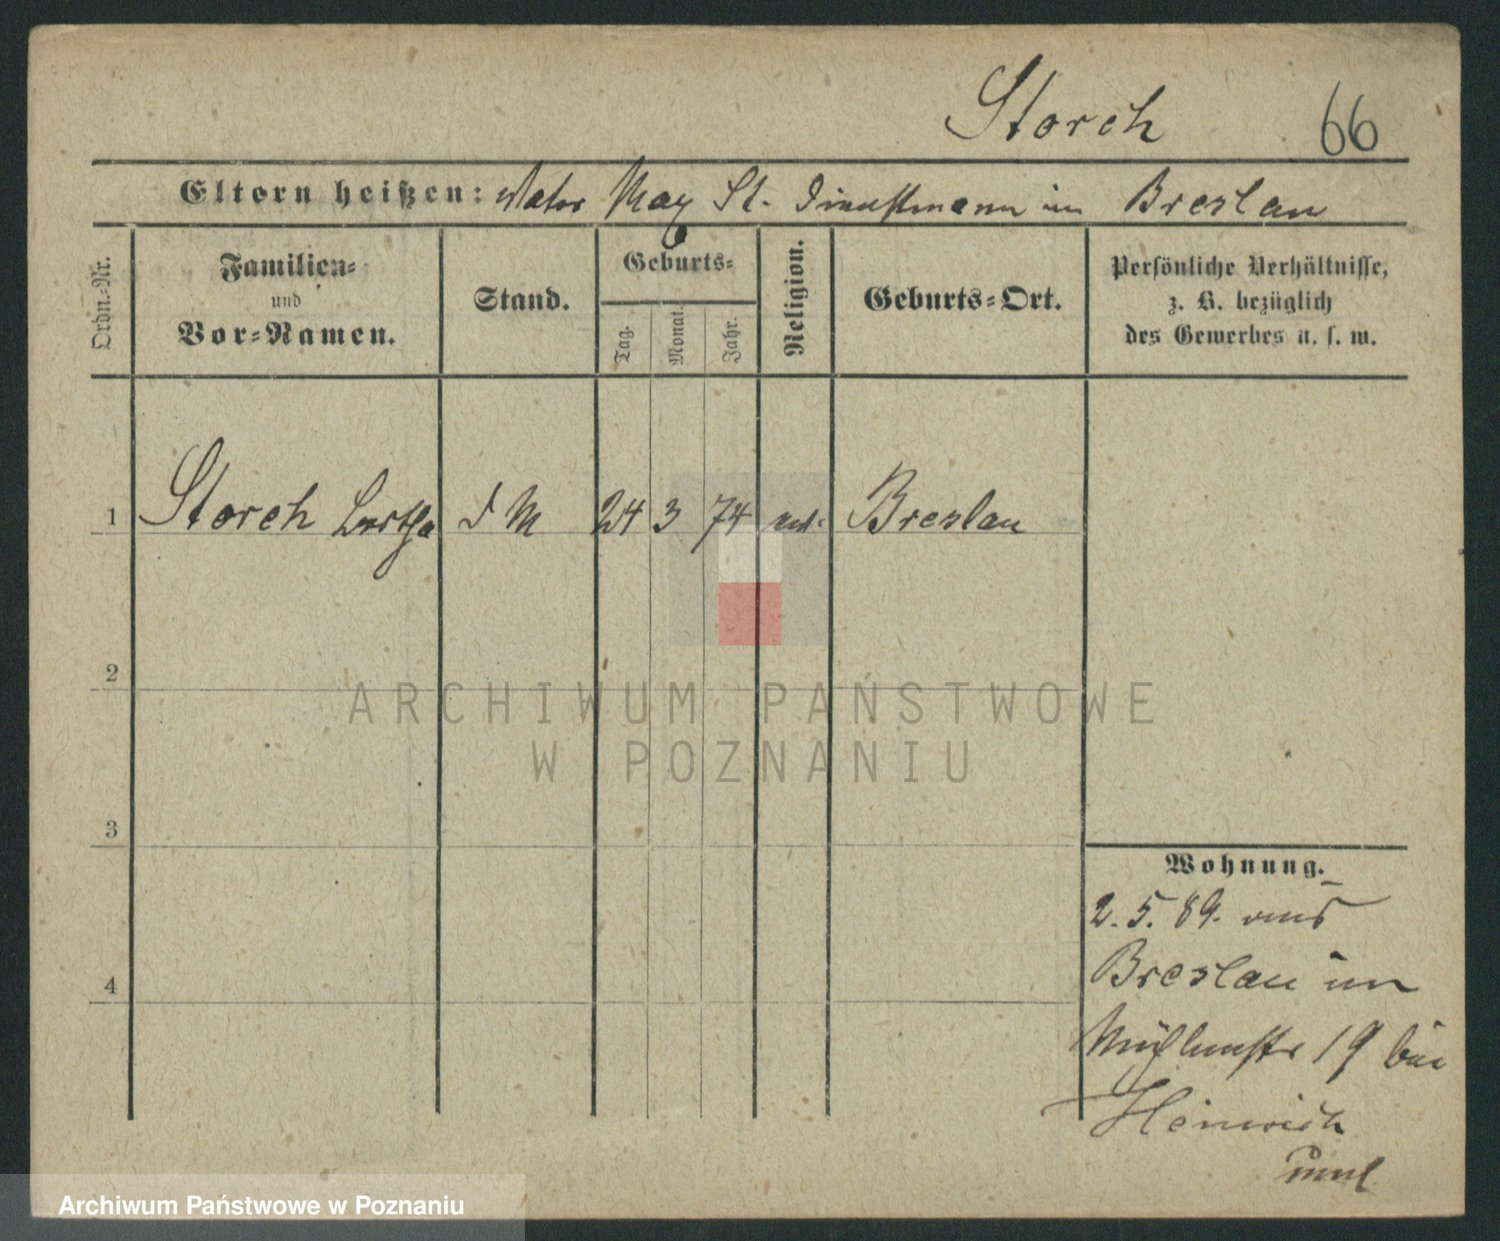 Storch 66
Eltern heißen: Vater Max St. Dienstmann in Breslau
Ordn.-Nr.
Familien-
und
Vor-Namen.
Stand.
Geburts-
Tag.
Monat.
Jahr.
Religion.
Geburts-Ort.
Persönliche Verhältnisse,
z. B. bezüglich
des Gewerbes u. s. w.
1 Storch Bertha d M 24 3 74 Breslau
2
3
4
Wohnung.
2. 5. 89. aus
Breslau in
Mühlenstr 19 bei
Heinrich
ARCHIWUM PAŃSTWOWE
W POZNANIU
Archiwum Państwowe w Poznaniu